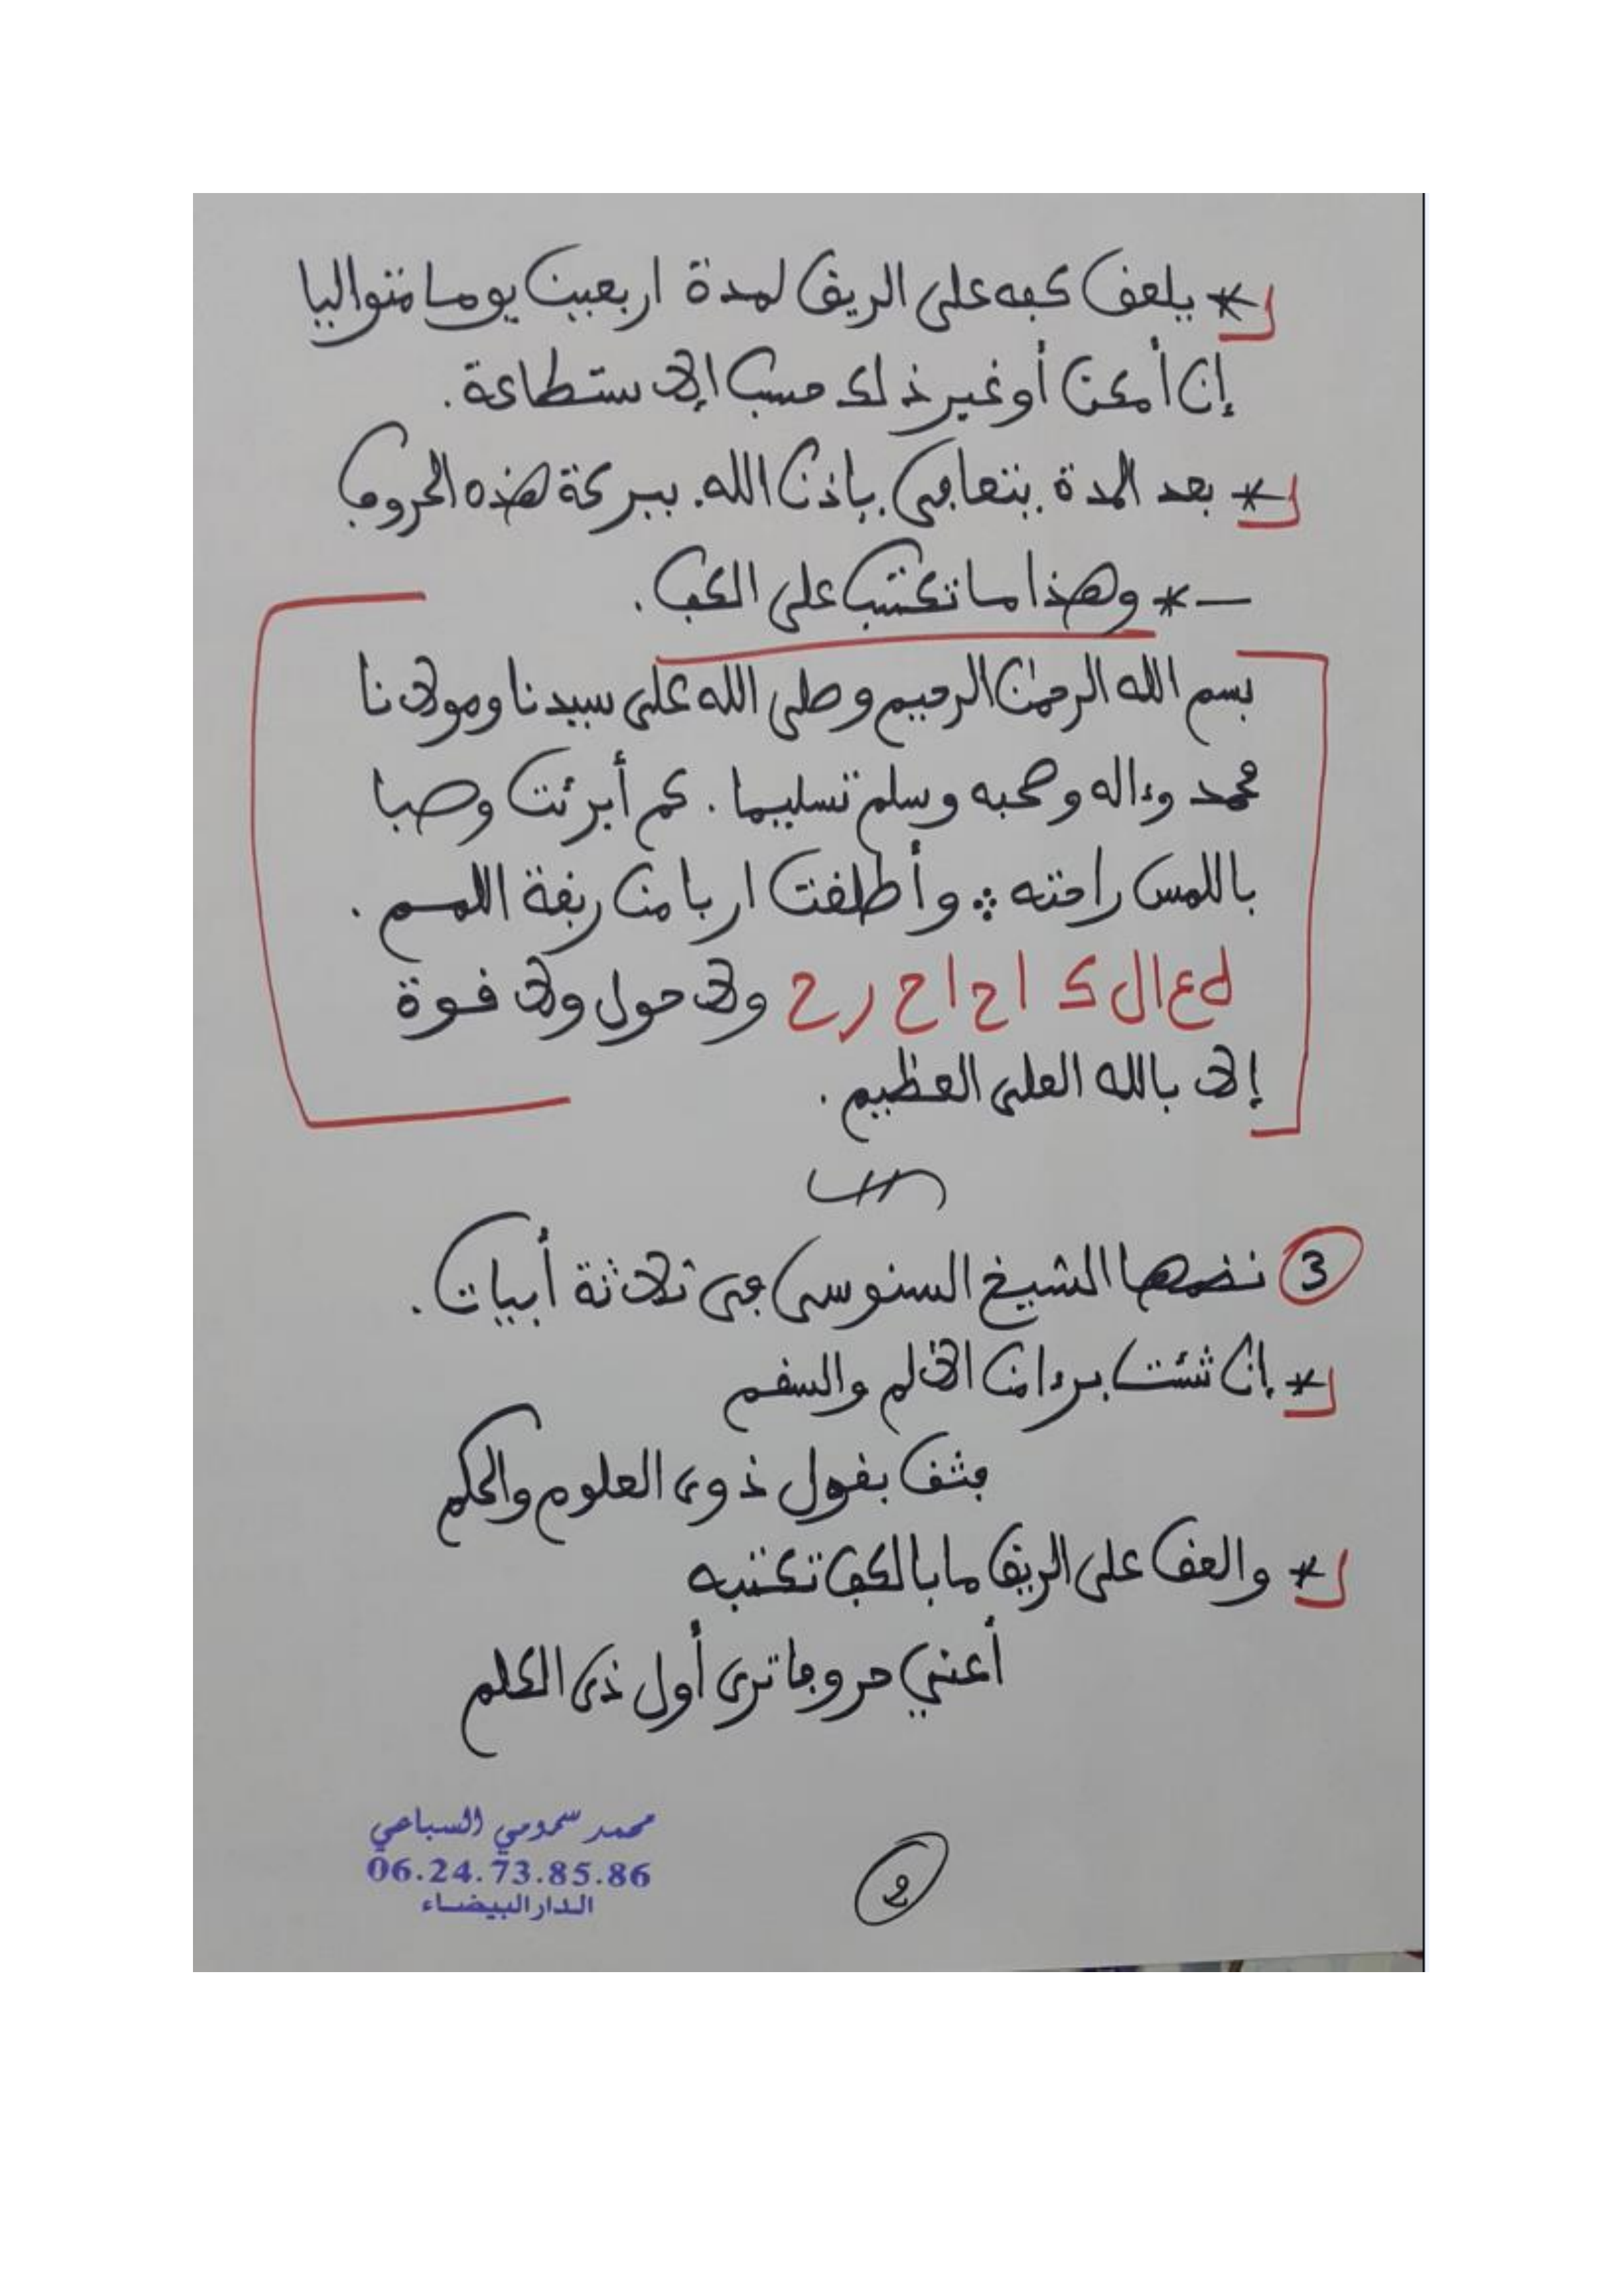 * يلعق كفه على الريق لمدة اربعين يوما متواليا
إن أمكن أو غير ذلك حسب الإستطاعة.
* بعد المدة يتعافى بإذن الله. ببركة هذه الحروف
— * وهذا ما تكتب على الكف.
بسم الله الرحمٰن الرحيم وصلى الله على سيدنا ومولانا
محمد وءاله وصحبه وسلم تسليما. كم أبرئت وصبا
باللمس راحته ∴ وأطلقت اربا من ربقة اللمم.
ولا حول ولا قوة
إلا بالله العلى العظيم.
3 نضمها الشيخ السنوسى فى ثلاثة أبيات.
* إن شئت برءا من الألم والسقم
فثق بقول ذوى العلوم والحكم
* والعق على الريق ما بالكف تكتبه
أعني حروفا ترى أول ذى الكلم
محمد سمومي السباعي
06.24.73.85.86
الدار البيضاء
2